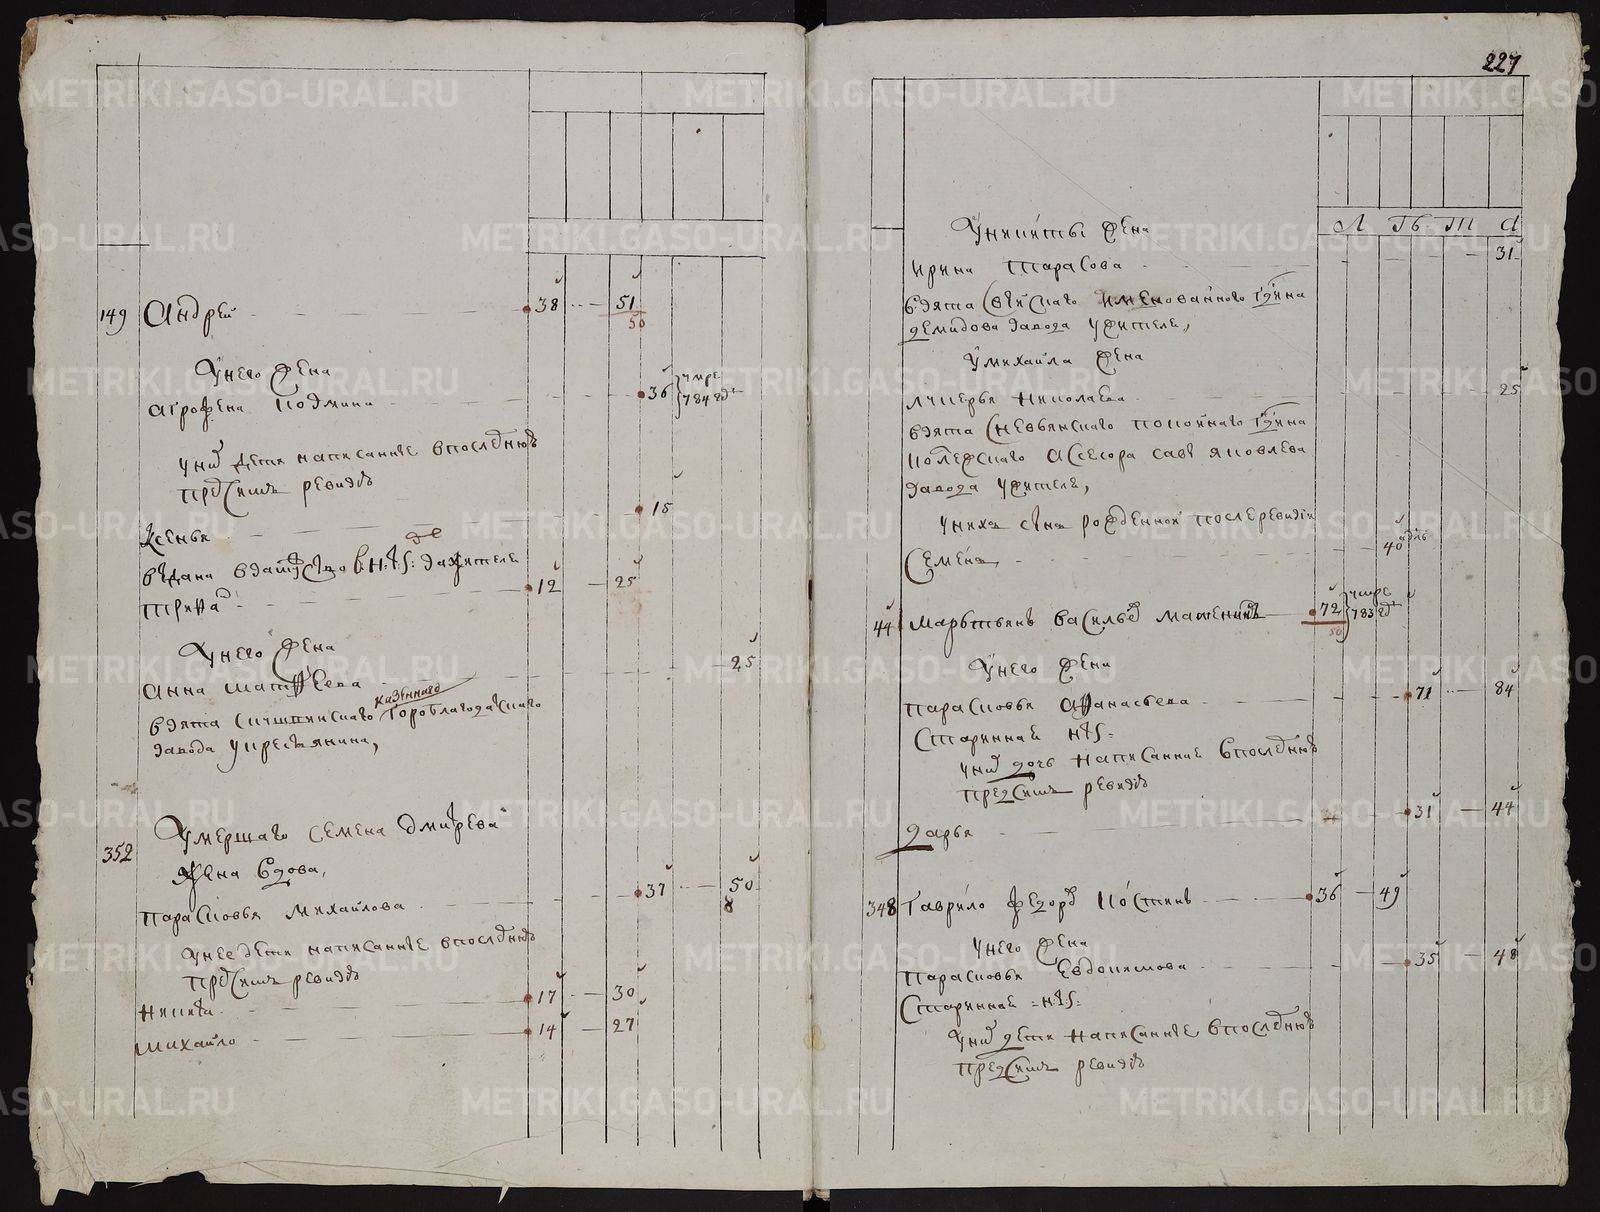 149 Андрей 38 51
50
У него жена
Агрофена Козмина 36 умре
784 году
У них дети написанные в последнюю
пред сим ревизию
Ксенья 15
Выдана в замужство в
Трифан 12 25
У него жена
Анна Матфеева 25
казенного
Взята с Кушвинского Гороблагодацкаго
завода у крестьянина,
352 Умершаго Семена Дмитрева
жена вдова,
Парасковья Михайлова 37 50
8
У нее дети написанные в последнюю
пред сим ревизию
Никита 17 30
Михайло 14 27
227
У Никиты жена
Ирина Тарасова 31
Взята с именованного г-дина
Демидова завода у жителя,
У Михайла жена
Лукерья Николаева 25
Взята с Невьянского покойнаго г-дина
колежскаго асессора Савы Яковлева
завода у жителя,
У них сын рожденной после ревизии
Семен 40 недель
44 Мартьян Васильев Маженин 72 умре
50 783 году
У него жена
Парасковья Афанасьева 71 84
Старинная
У них дочь написанная в последнюю
пред сим ревизию
Дарья 31 44
348 Гаврило Федоров Костин 36 49
У него жена
Парасковья Евдокимова 35 48
Старинная
У них дети написанные в последнюю
пред сим ревизию
METRIKI.GASO-URAL.RU